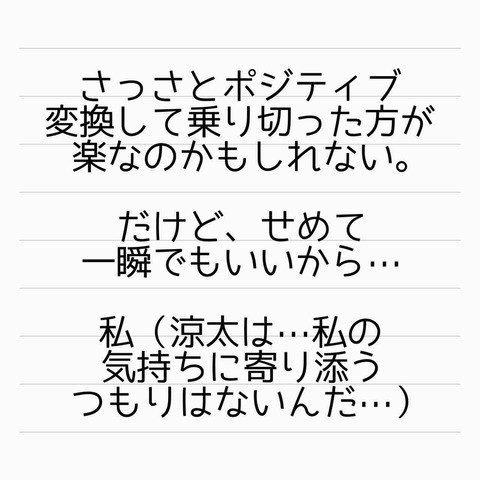 さっさとポジティブ
変換して乗り切った方が
楽なのかもしれない。
だけど、せめて
一瞬でもいいから…
私（涼太は…私の
気持ちに寄り添う
つもりはないんだ…）